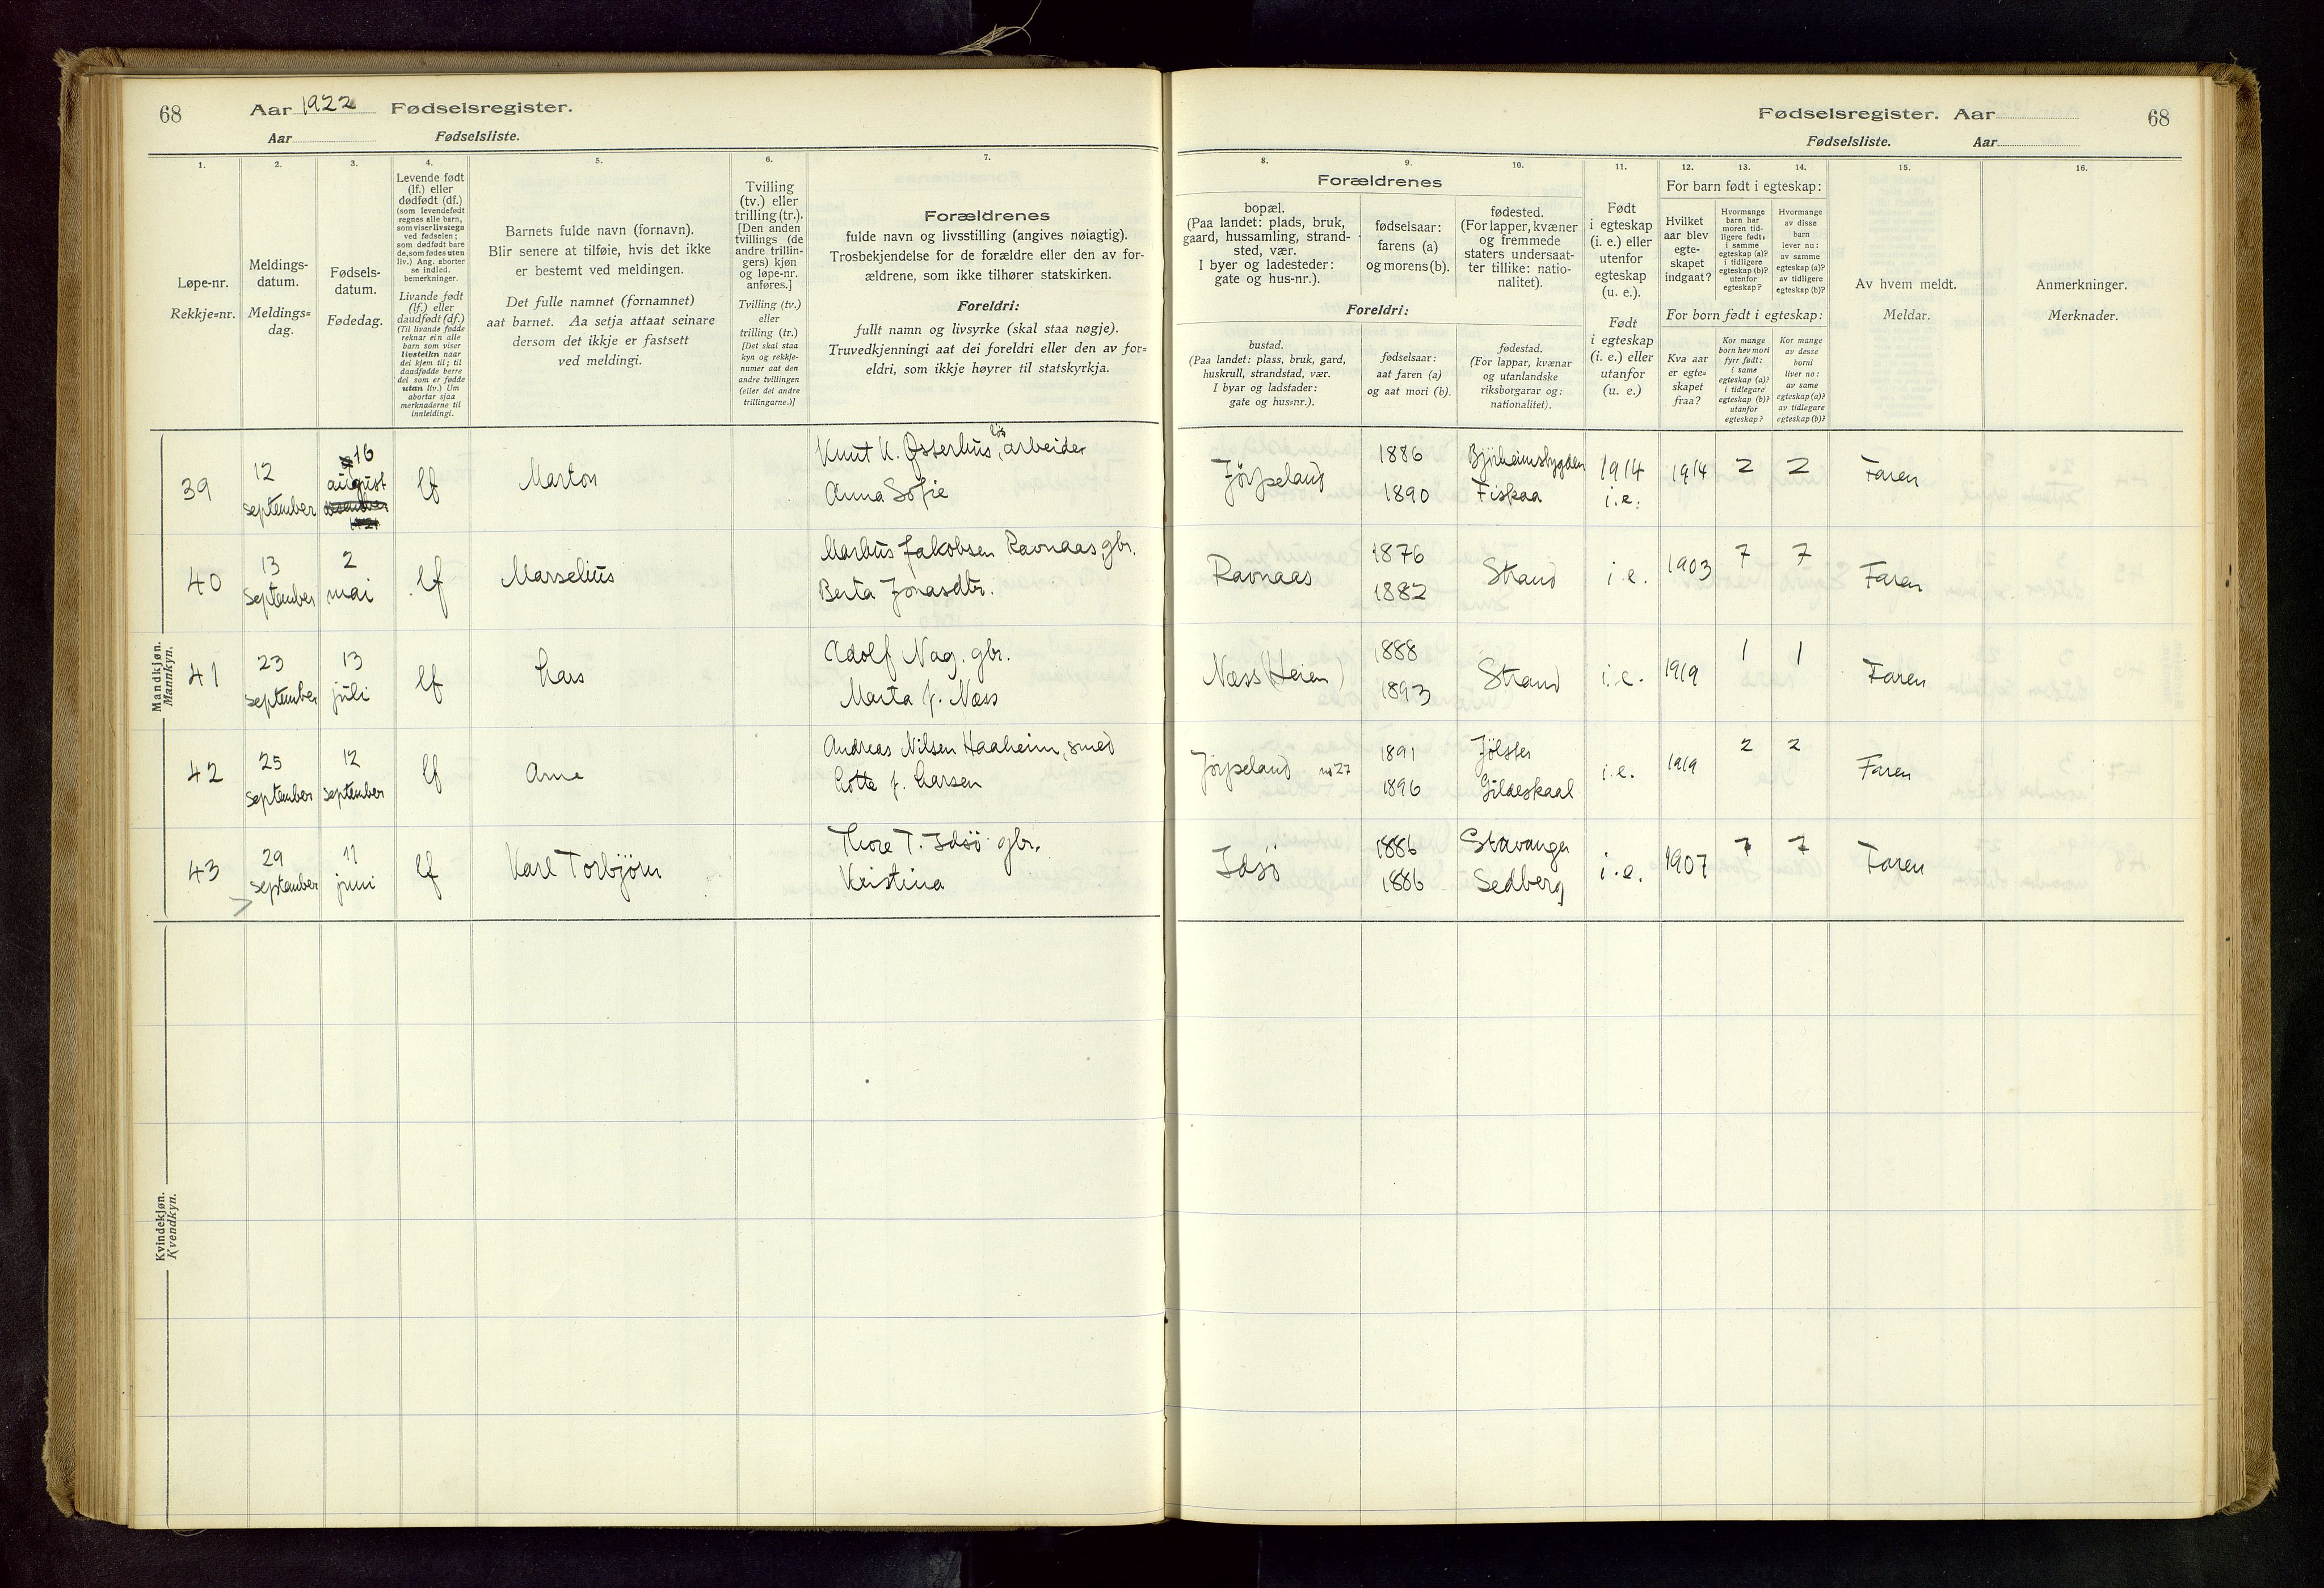 68 Aar 1922 Fødselsregister.
Aar Fødselsliste.
1. 2. 3. 4. 5. 6. 7.
Løpe-nr.
Rekkje=nr.
Meldings-
datum.
Meldings=
dag.
Fødsels-
datum.
Fødedag.
Levende født
(lf.) eller
dødfødt (df.)
(som levendefødt
regnes alle barn,
som viser livstegn
ved fødselen;
som dødfødt bare
de, som fødes uten
liv.) Ang. aborter
se indled.
bemerkninger.
Livande født
(lf.) eller
daudfødt (df.)
(Til livande fødde
reknar ein alle
barn som viser
livsteikn naar
dei kjem til; til
daudfødde berre
dei som er fødde
utan liv.) Um
abortar sjaa
merknaderne til
innleidingi.
Barnets fulde navn (fornavn).
Blir senere at tilføie, hvis det ikke
er bestemt ved meldingen.
Det fulle namnet (fornamnet)
aat barnet. Aa setja attaat seinare
dersom det ikkje er fastsett
ved meldingi.
Tvilling
(tv.) eller
trilling (tr.).
[Den anden
tvillings (de
andre trillin-
gers) kjøn
og løpe-nr.
anføres.]
Tvilling (tv.)
eller
trilling (tr.)
[Det skal staa
kyn og rekkje-
numer aat den
andre tvillingen
(eller dei andre
trillingarne.)]
Forældrenes
fulde navn og livsstilling (angives nøiagtig).
Trosbekjendelse for de forældre eller den av for-
ældrene, som ikke tilhører statskirken.
Foreldri:
fullt namn og livsyrke (skal staa nøgje).
Truvedkjenningi aat dei foreldri eller den av for=
eldri, som ikkje høyrer til statskyrkja.
Mandkjøn.
Mannkyn.
39 12 september 16 august lf Marton Knut K. Østerhus, løsarbeider
Anna Sofie
40 13 September 2 mai lf Marselius Markus Jakobsen Ravnaas, gbr.
Berta Jonasdtr.
41 23 september 13 juli lf Lars Adolf Nag. gbr.
Marta J. Næss
42 25 september 12 september lf Arne Andreas Nilsen Haaheim, smed
Lotte J. Larsen
43 29 september 11 juni lf Karl Torbjörn Thore T. Idsö gbr.
Kristina
Kvindekjøn.
Kvendkyn.
Fødselsregister. Aar 68
Fødselsliste. Aar
8. 9. 10. 11. 12. 13. 14. 15. 16.
Forældrenes
bopæl.
(Paa landet: plads, bruk,
gaard, hussamling, strand-
sted, vær.
I byer og ladesteder:
gate og hus-nr.).
fødselsaar:
farens (a)
og morens (b).
fødested.
(For lapper, kvæner
og fremmede
staters undersaat-
ter tillike: natio-
nalitet).
Foreldri:
bustad.
(Paa landet: plass, bruk, gard,
huskrull, strandstad, vær.
I byar og ladstader:
gate og hus=nr.).
fødselsaar:
aat faren (a)
og aat mori (b).
fødestad.
(For lappar, kvænar
og utanlandske
riksborgarar og:
nationalitet).
Født
i egteskap
(i. e.) eller
utenfor
egteskap
(u. e.).
Født
i egteskap
(i. e.) eller
utanfor
(u. e.)
For barn født i egteskap:
Hvilket
aar blev
egte-
skapet
indgaat?
Hvormange
barn har
moren tid-
ligere født:
i samme
egteskap (a)?
i tidligere
egteskap (b)?
utenfor
egteskap?
Hvormange
av disse
barn
lever nu:
av samme
egteskap (a)?
av tidligere
egteskap (b)?
For born født i egteskap:
Kva aar
er egte=
skapet
fraa?
Kor mange
born hev mori
fyrr født:
i same
egteskap (a)?
i tidlegare
egteskap (b)?
utanfor
egteskap?
Kor mange
av desse
borni
liver no:
av same
egteskap (a)?
av tidlegare
egteskap (b)?
Av hvem meldt.
Meldar.
Anmerkninger.
Merknader.
Jörpeland 1886 Björheimsbygden 1914 1914 2 2 Faren
1890 Fiskaa i.e.
Ravnaas 1876 1882 Strand i.e. 1903 7 7 Faren
Næss (Heien) 1888 1893 Strand i.e. 1919 1 1 Faren
Jörpeland no 27 1891 Jölster i.e. 1919 2 2 Faren
1896 Gildeskaal
Idsö 1886 Stavanger i.e. 1907 7 7 Faren
1886 Sedberg